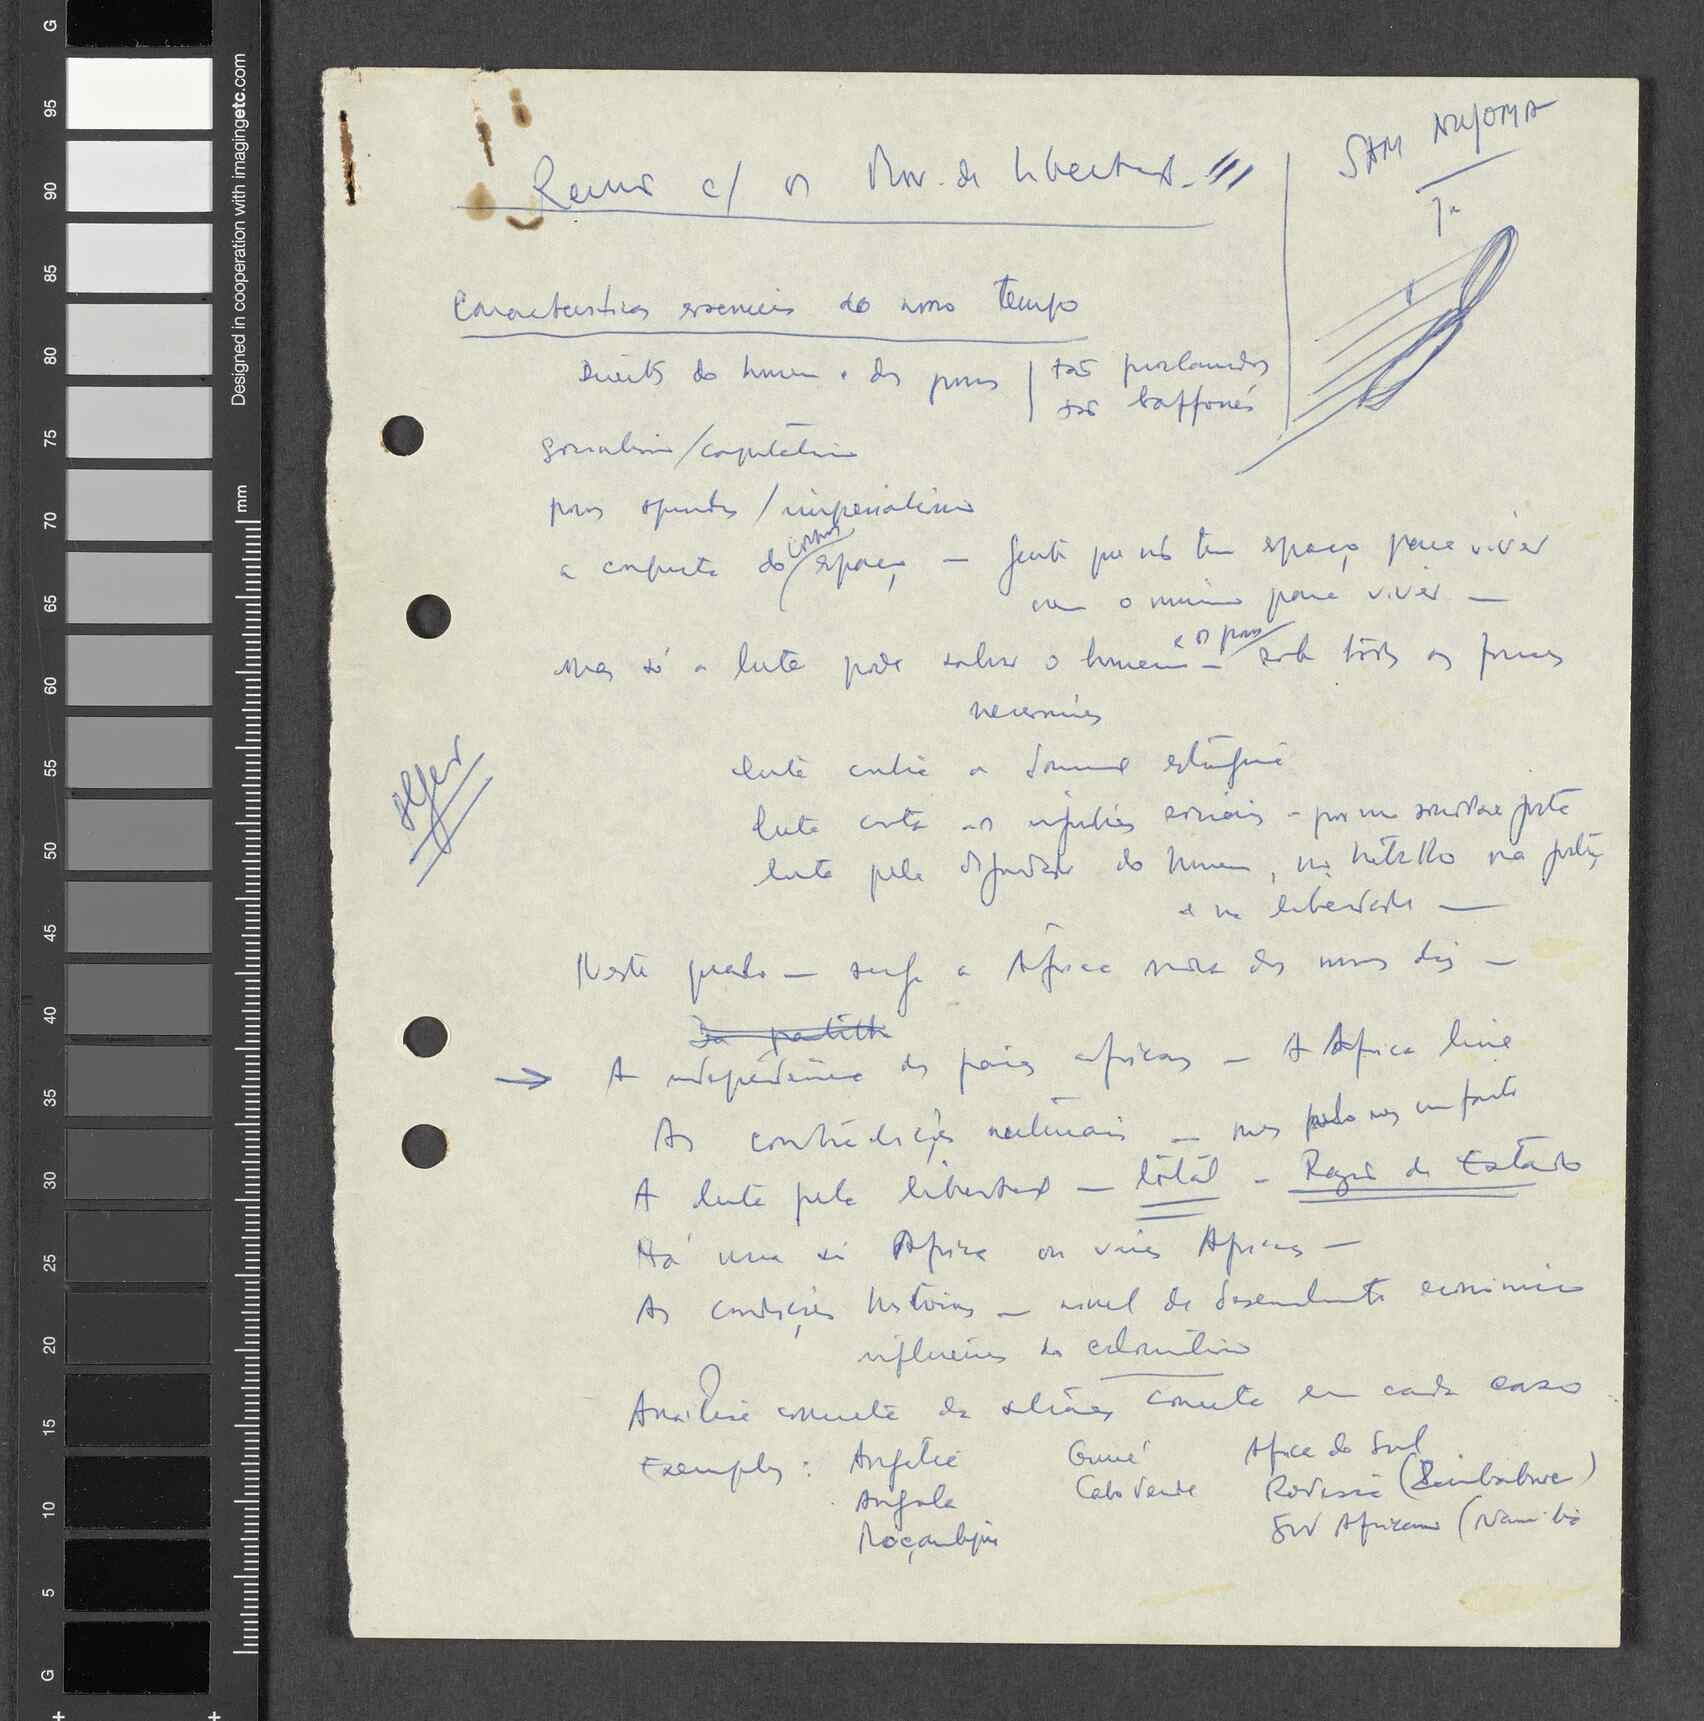 SAM NUJOMA
c/ os Mov. de Libertação
Características essenciais do nosso tempo
Direitos do homem e dos povos
tão proclamados
tão baffoués
socialismo/capitalismo
povos oprimidos / imperialismo
a conquista do cosmos / espaço — gente que não tem espaço para viver
nem o mínimo para viver —
mas só a luta pode salvar o homem e os povos — sob todas as formas
necessárias
luta contra a dominação estrangeira
luta contra as injustiças sociais - por uma sociedade justa
luta pela dignidade do homem, no trabalho na justiça
e na liberdade —
Alger
Neste quadro — surge a África nova dos nossos dias —
Da partilha
→ A independência dos países africanos — A África livre
As contradições naturais — mas
A luta pela libertação — total - Razão de Estado
Há uma só África ou várias Áfricas —
As condições históricas — nível de desenvolvimento económico
influências do colonialismo
Análise concreta da situação concreta em cada caso
Exemplos: Argélia Guiné África do Sul
Angola Cabo Verde Rodésia (Zimbabwe)
Moçambique Sud Africano (Namibia
G
95
90
85
80
75
70
65
60
55
50
45
40
35
30
25
20
15
10
5
G
mm
Designed in cooperation with imagingetc.com